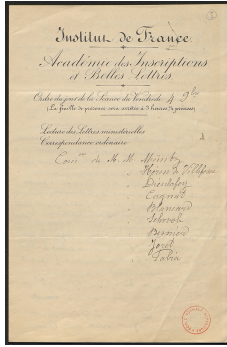 Institut de France.
Académie des Inscriptions
et Belles Lettres
Ordre du jour de la Séance du Vendredi 4 9bre
(La feuille de présence sera retirée à 3 heures ¼ précises)
Lecture des Lettres ministérielles
Correspondance ordinaire
Comm. de M. M. Müntz
" Héron de Villefosse
" Dieulafoy
" Cagnat
" Blancard
" Schwab
" Bernard
" Joret
" Fabia